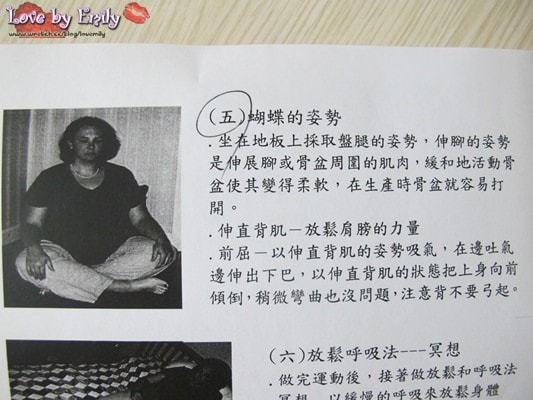 Love by Emily
www.wretch.cc/blog/lovemily
(五)蝴蝶的姿勢
.坐在地板上採取盤腿的姿勢，伸腳的姿勢
是伸展腳或骨盆周圍的肌肉，緩和地活動骨
盆使其變得柔軟，在生產時骨盆就容易打
開。
.伸直背肌－放鬆肩膀的力量
.前屈－以伸直背肌的姿勢吸氣，在邊吐氣
邊伸出下巴，以伸直背肌的狀態把上身向前
傾倒，稍微彎曲也沒問題，注意背不要弓起。
(六)放鬆呼吸法---冥想
.做完運動後，接著做放鬆和呼吸法
冥想，以緩慢的呼吸來放鬆身體